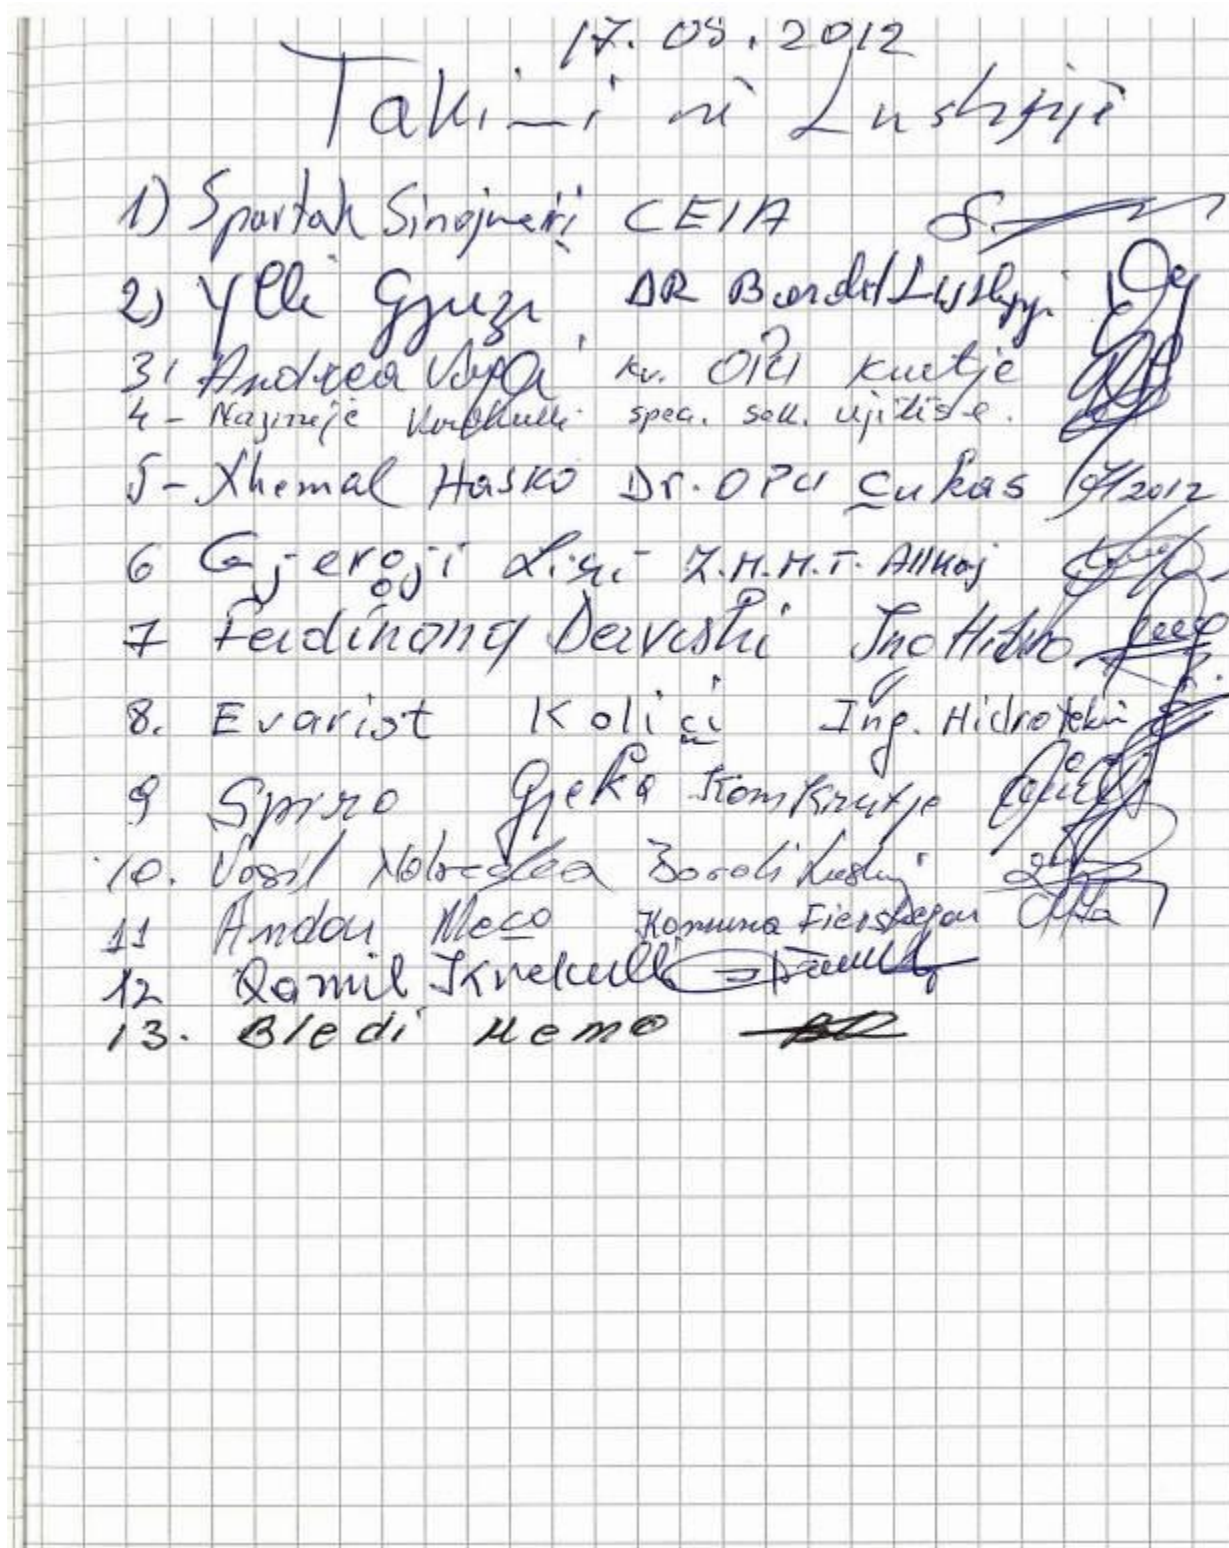 17.05.2012
Takimi në Lushnjë
1) Spartak Sinojmeri CEIA
2) Ylli Gjuzi DR Bordit Lushnje
3) Andrea kv. OPU Krutje
4 - Nazmije spec. sek. ujitjes.
5 - Xhemal Hasko Dr. OPU Çukas 2012
6 Gjergji Liçi Z.H.M.T. Allkaj
7 Ferdinand Dervishi Ing Hidro
8. Evarist Koliçi Ing. Hidrotekni
9 Spiro Gjeka Kom Krutje
10. Vasil Bordi Lushnj
11 Andon Meço Komuna Fiershegan
12 Qamil Krekulli
13. Bledi Memo